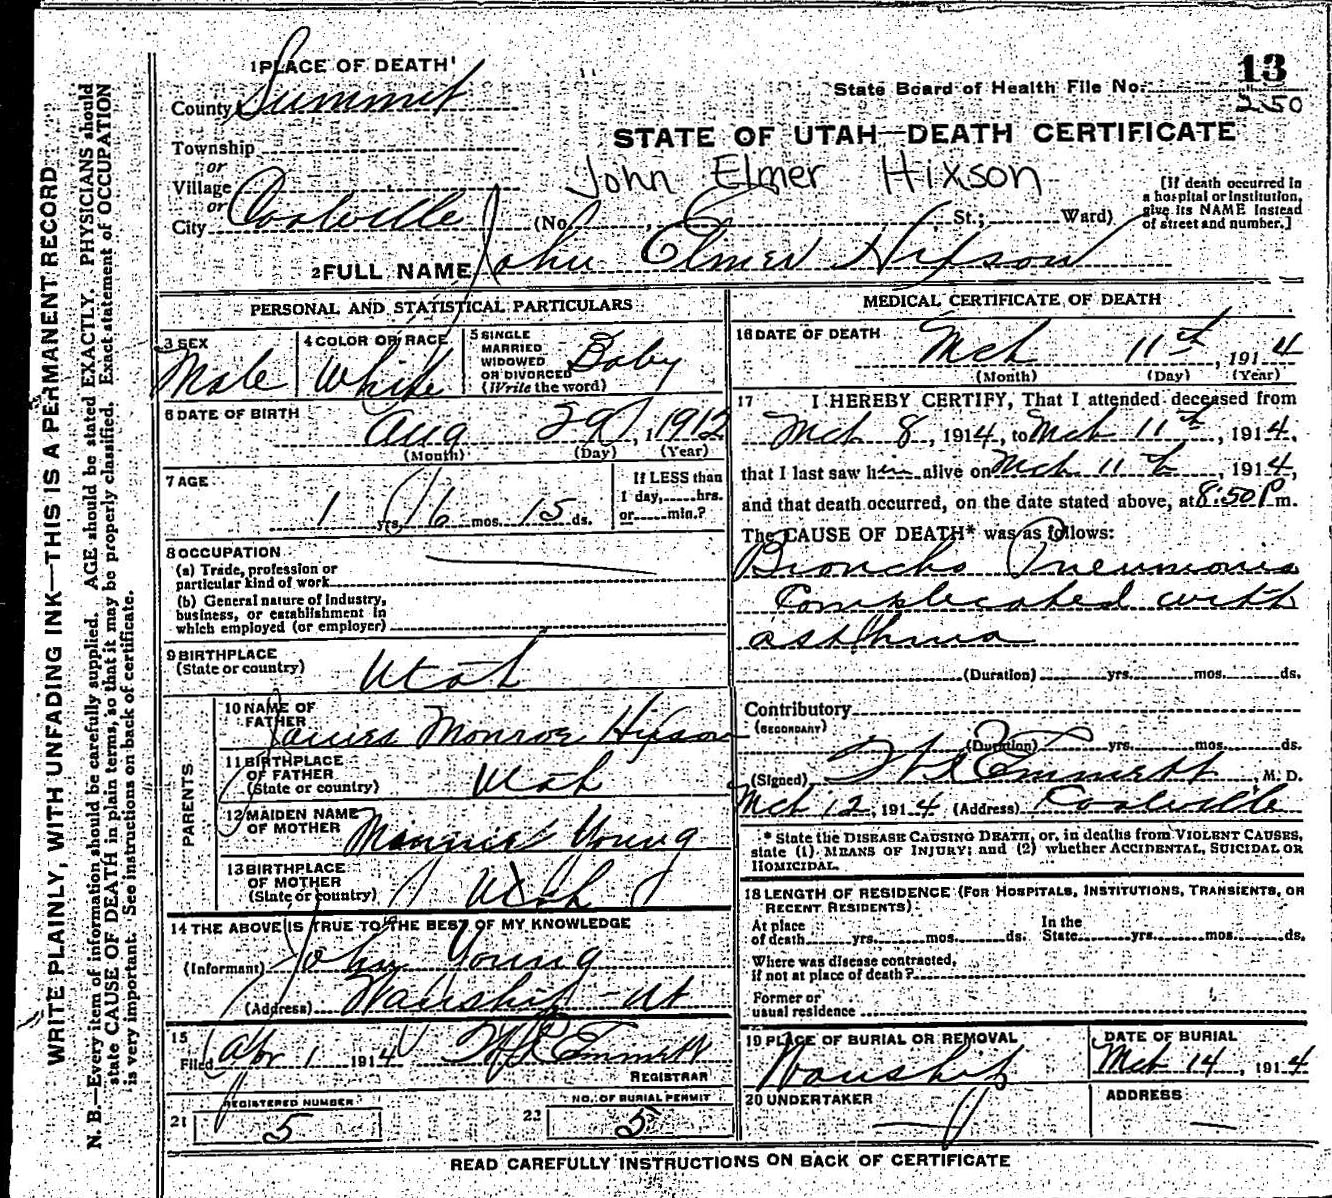 1 PLACE OF DEATH
County Summit
Township
or
Village
or
City Coalville
State Board of Health File No. 13
250
STATE OF UTAH—DEATH CERTIFICATE
John Elmer Hixson
(No. , St.; Ward)
[If death occurred in
a hospital or institution,
give its NAME instead
of street and number.]
2 FULL NAME John Elmer Hixson
PERSONAL AND STATISTICAL PARTICULARS
3 SEX
Male
4 COLOR OR RACE
White
5 SINGLE
MARRIED
WIDOWED
OR DIVORCED
(Write the word)
Baby
6 DATE OF BIRTH
Aug 29, 1912
(Month) (Day) (Year)
7 AGE
1 yrs. 6 mos. 15 ds.
If LESS than
1 day, hrs.
or min.?
8 OCCUPATION
(a) Trade, profession or
particular kind of work
(b) General nature of industry,
business, or establishment in
which employed (or employer)
9 BIRTHPLACE
(State or country)
Utah
PARENTS
10 NAME OF
FATHER
James Monroe Hixson
11 BIRTHPLACE
OF FATHER
(State or country)
Utah
12 MAIDEN NAME
OF MOTHER
Young
13 BIRTHPLACE
OF MOTHER
(State or country)
Utah
14 THE ABOVE IS TRUE TO THE BEST OF MY KNOWLEDGE
(Informant) John Young
(Address) Wanship - Ut
15
Filed Apr 1 1914
Emmett
REGISTRAR
21
REGISTERED NUMBER
5
22
NO. OF BURIAL PERMIT
5
MEDICAL CERTIFICATE OF DEATH
16 DATE OF DEATH
Mch 11th, 1914
(Month) (Day) (Year)
17 I HEREBY CERTIFY, That I attended deceased from
Mch 8, 1914, to Mch 11th, 1914,
that I last saw him alive on Mch 11th, 1914,
and that death occurred, on the date stated above, at 8:50 P m.
The CAUSE OF DEATH* was as follows:
Broncho Pneumonia
Complicated with
asthma
(Duration) yrs. mos. ds.
Contributory
(SECONDARY)
(Duration) yrs. mos. ds.
(Signed) Emmett, M. D.
Mch 12, 1914 (Address) Coalville
* State the DISEASE CAUSING DEATH, or, in deaths from VIOLENT CAUSES,
state (1) MEANS OF INJURY; and (2) whether ACCIDENTAL, SUICIDAL OR
HOMICIDAL.
18 LENGTH OF RESIDENCE (FOR HOSPITALS, INSTITUTIONS, TRANSIENTS, OR
RECENT RESIDENTS)
At place
of death yrs. mos. ds.
In the
State yrs. mos. ds.
Where was disease contracted,
if not at place of death?
Former or
usual residence
19 PLACE OF BURIAL OR REMOVAL
Wanship
DATE OF BURIAL
Mch 14, 1914
20 UNDERTAKER
ADDRESS
READ CAREFULLY INSTRUCTIONS ON BACK OF CERTIFICATE
WRITE PLAINLY, WITH UNFADING INK—THIS IS A PERMANENT RECORD
N. B.—Every item of information should be carefully supplied. AGE should be stated EXACTLY. PHYSICIANS should
state CAUSE OF DEATH in plain terms, so that it may be properly classified. Exact statement of OCCUPATION
is very important. See instructions on back of certificate.